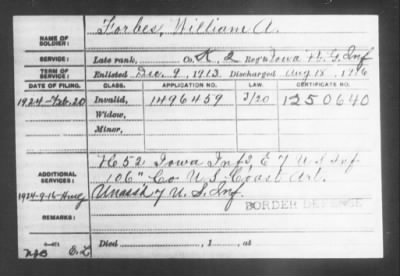 NAME OF SOLDIER: Forbes, William A.
SERVICE: Late rank, Co. K, 2 Reg't Iowa N. G. Inf
TERM OF SERVICE: Enlisted Dec. 9, 1913. Discharged Aug 18, 1916
DATE OF FILING. CLASS. APPLICATION NO. LAW. CERTIFICATE NO.
1924-Feb. 20 Invalid, 1496459 3/20 1250640
Widow,
Minor,
ADDITIONAL SERVICES: Co. 52 Iowa Inf, E 7 U.S. Inf
106" Co U.S. Coast Art.
1924-9-16 Unassd 7 U.S. Inf.
BORDER DEFENSE
REMARKS:
Died , 1 , at